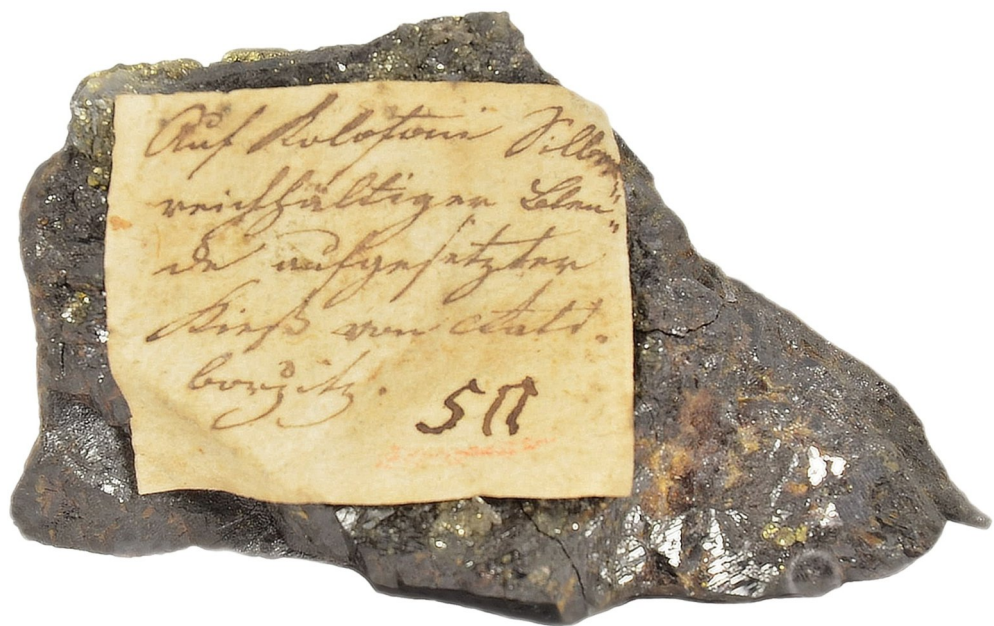 Auf Kolofoni Silber„
reichhältiger Blen„
de aufgesetzter
Kieß von Altt.
borzitz.
511